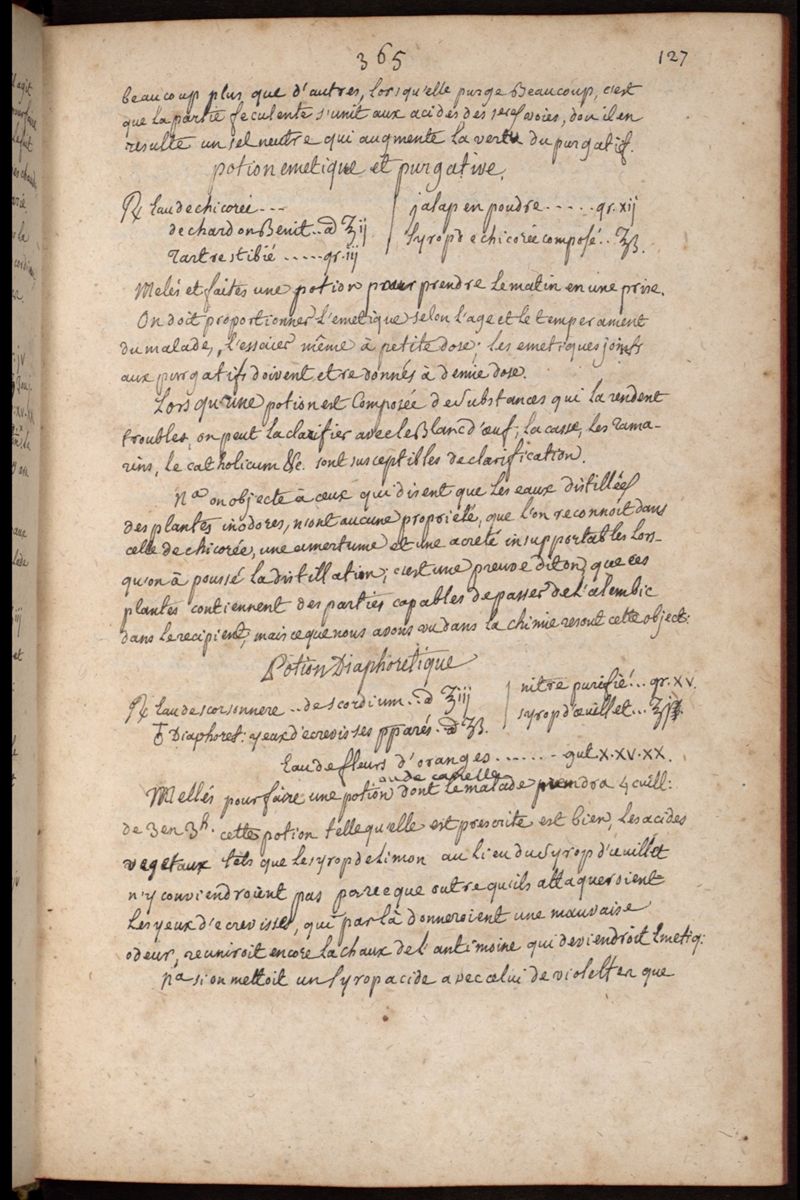 365
127
beaucoup plus que d'autres, lorsqu'elle purge Beaucoup, c'est
que la partie feculente s'unit aux acides des 1eres voies, dou il en
resulte un sel neutre qui augmente la vertu du purgatif.
potion emetique et purgative.
℞ Eau de chicorée - - -
de chardon Benit .. a ʒij
Tartre stibié ..... gr. iij
jalap en poudre ..... gr. xij
syrop de chicorée composé .. ʒß.
Melés et faites une potion pour prendre le matin en une prise.
On doit proportionner l'emetique selon l'age et le temperament
du malade, l'essaier même à petite dose. les emetiques joints
aux purgatifs doivent etre donnés à demie dose.
Lors qu'une potion est Composée de substances qui la rendent
troubles, on peut la clarifier avec le Blanc d'œuf; la casse, les Tama-
rins, le catholicum &c. sont susceptibles de clarification.
Na on objecte à ceux qui disent que les eaux distillées
des plantes inodores, n'ont aucune proprieté, que l'on reconnoit dans
celle de chicorée, une amertume et une acreté insupportables lors-
qu'on à poussé la distillation; c'est une preuve dit on, que ces
plantes contiennent des parties capables de passer de l'alembic
dans le recipient; mais ce que nous avons vu dans la chimie resout cette object:
Potion Diaphoretique
℞ Eau de scorsonnere .. de scordium .. a ʒiij
Diaphoret: yeux d'ecrevisses pparés. a ʒß.
nitre purifié .. gr. xv.
syrop d'œuillet ... 
Eau de fleurs d'oranges ...... gut. x. xv. xx.
ou de canelle
Mellés pour faire une potion dont le malade prendra 4 cuill:
de 3 en 3h. cette potion telle qu'elle est prescrite est bien, les acides
vegetaux tels que le syrop de limon au lieu du syrop d'œuillet
n'y conviendroient pas parce que outre qu'ils attaqueroient
les yeux d'ecrevisses, qui par là donneroient une mauvaise
odeur, reuniroit encore la chaux de l'antimoine qui deviendroit Emetiq:
Na si on mettoit un syrop acide avec celui de violette que